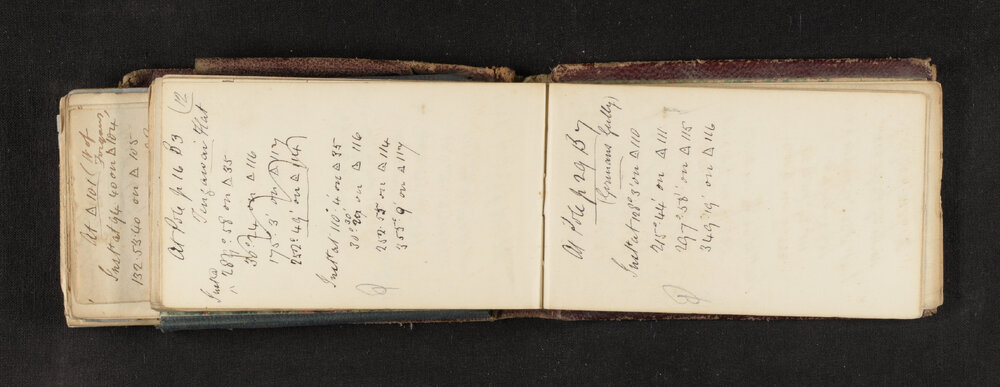 At △ 101 (W of
Inst at 94.40 on △ 104
132.53.40 on △ 105
At Pole p 16 B3 (12
Tengawai Flat
Inst at
287°.58 on △ 85
30°.24 on △ 116
175° 3' on △ 117
252° 49' on △ 114
Inst at 110°.4 on △ 85
30°.30' on △ 116
252.55 on △ 114
355° 9' on △ 117
At Pole p 29 B7
(Gormans Gully)
Inst at 128° 3' on △ 110
245° 44' on △ 111
297°.58' on △ 115
349°.19' on △ 116